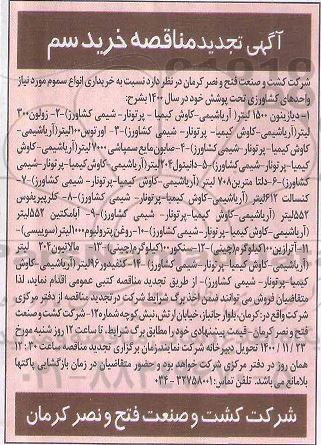 آگهی تجدید مناقصه خرید سم
شرکت کشت و صنعت فتح و نصر کرمان در نظر دارد نسبت به خریداری انواع سموم مورد نیاز
واحدهای کشاورزی تحت پوشش خود در سال ۱۴۰۰ بشرح:
۱- دیازینون ۱۵۰۰ لیتر (آریاشیمی- کاوش کیمیا - پرتونار- شیمی کشاورز) ۲- زولون ۳۰۰
لیتر (آریاشیمی- کاوش کیمیا- پرتونار- شیمی کشاورز) ۳- اورتوس ۱۰۰ لیتر (آریاشیمی-
کاوش کیمیا- پرتونار- شیمی کشاورز) ۴- صابون مایع سمپاشی ۷۰۰۰ لیتر (آریاشیمی- کاوش
کیمیا- پرتونار- شیمی کشاورز) ۵- دانیتول ۲۰۴ لیتر (آریاشیمی- کاوش کیمیا- پرتونار- شیمی
کشاورز) ۶- دلتا مترین ۷۰۸ لیتر (آریاشیمی- کاوش کیمیا- پرتونار- شیمی کشاورز) ۷-
کنسالت ۶۱۲ لیتر (آریاشیمی- کاوش کیمیا- پرتونار- شیمی کشاورز) ۸- کلرپیریفوس
۵۵۲ لیتر (آریاشیمی- کاوش کیمیا- پرتونار- شیمی کشاورز) ۹- آبامکتین ۵۵۲ لیتر
(آریاشیمی- کاوش کیمیا- پرتونار- شیمی کشاورز) ۱۰- روغن پترولیوم ۱۰۰۰ لیتر (سوییسی)-
۱۱- آترازین ۱۰۰ کیلوگرم (چینی) ۱۲- سنکور ۱۰۰ کیلوگرم (چینی) ۱۳- مالاتیون ۲۰۴ لیتر
(آریاشیمی- کاوش کیمیا- پرتونار- شیمی کشاورز) ۱۴- کنفیدور ۹۶ لیتر (آریاشیمی- کاوش
کیمیا- پرتونار- شیمی کشاورز)- از طریق تجدید مناقصه کتبی عمومی اقدام نماید، لذا
متقاضیان فروش می توانند ضمن اخذ برگ شرایط شرکت در تجدید مناقصه از دفتر مرکزی
شرکت واقع در: کرمان، بلوار جانباز، خیابان ارتش، نبش کوچه شماره ۱۲- شرکت کشت و صنعت
فتح و نصر کرمان- قیمت پیشنهادی خود را مطابق برگ شرایط، تا ساعت ۱۲ روز شنبه مورخ
۱۴۰۰ / ۱۱ / ۲۳ تحویل دبیرخانه شرکت نمایند. زمان برگزاری تجدید مناقصه ساعت ۱۲:۳۰
همان روز در دفتر مرکزی شرکت خواهد بود و حضور متقاضیان در زمان بازگشایی پاکتها
بلامانع می باشد. تلفن تماس: ۳۲۷۵۸۰۰۱ - ۰۳۴
شرکت کشت و صنعت فتح و نصر کرمان